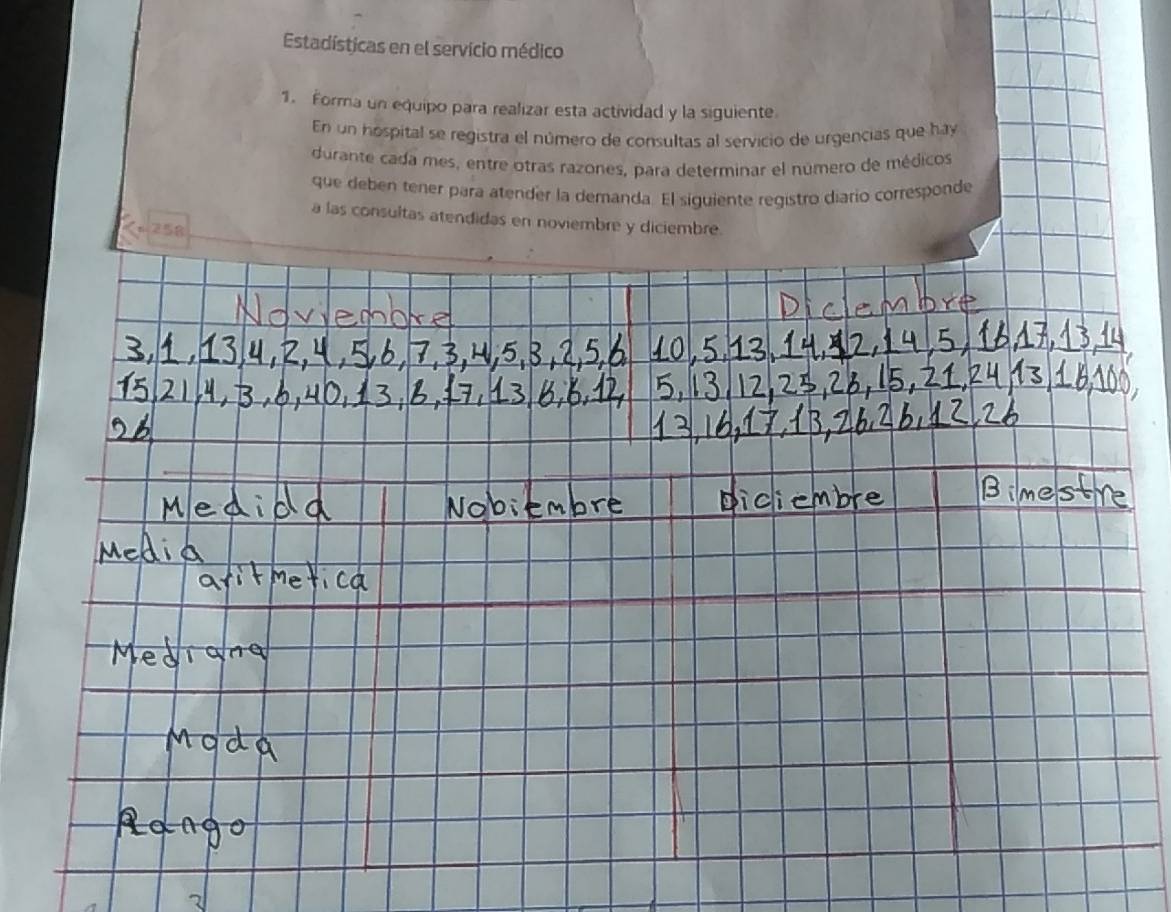 Estadísticas en el servicio médico
1. Forma un equipo para realizar esta actividad y la siguiente.
En un hospital se registra el número de consultas al servicio de urgencias que hay
durante cada mes, entre otras razones, para determinar el número de médicos
que deben tener para atender la demanda. El siguiente registro diario corresponde
a las consultas atendidas en noviembre y diciembre.
258
Noviembre
3, 1, 13, 4, 2, 4, 5, 6, 7, 3, 4, 5, 3, 2, 5, 6
15, 21, 4, 3, 6, 40, 13, 6, 17, 13, 6, 6, 12,
26
Diciembre
10, 5, 13, 14, 12, 14, 5, 16, 17, 13, 14,
5, 13, 12, 25, 26, 15, 21, 24, 13, 16, 100,
13, 16, 17, 13, 26, 26, 12, 26
Medida Nobiembre Diciembre Bimestre
Media
aritmetica
Mediana
Moda
Rango